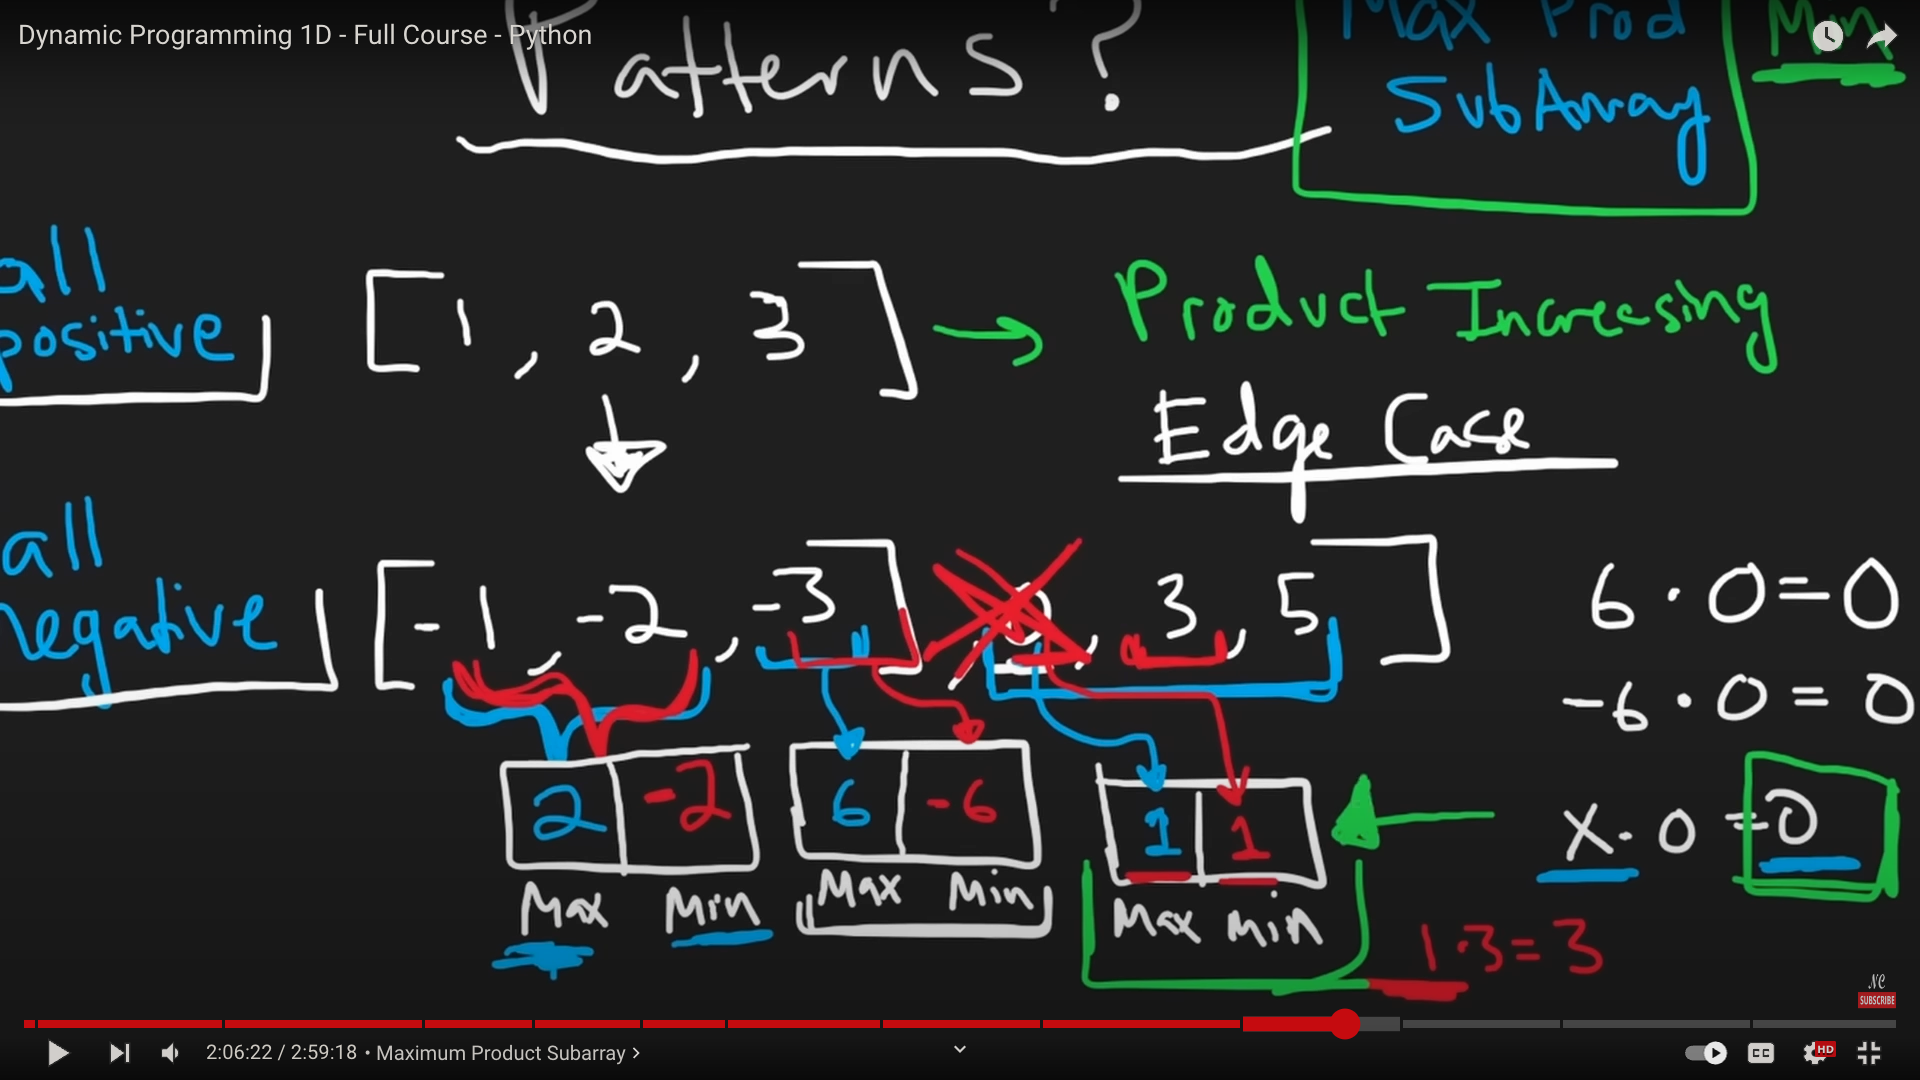 Dynamic Programming 1D - Full Course - Python
Patterns?
Max Prod
SubArray
Min
all
positive
[1, 2, 3]
Product Increasing
Edge Case
all
negative
[-1, -2, -3] , 0, 3, 5]
6 · 0 = 0
-6 · 0 = 0
x · 0 = 0
2 -2
Max Min
6 -6
Max Min
1 1
Max Min
1·3=3
NC
SUBSCRIBE
2:06:22 / 2:59:18 • Maximum Product Subarray >
CC
HD